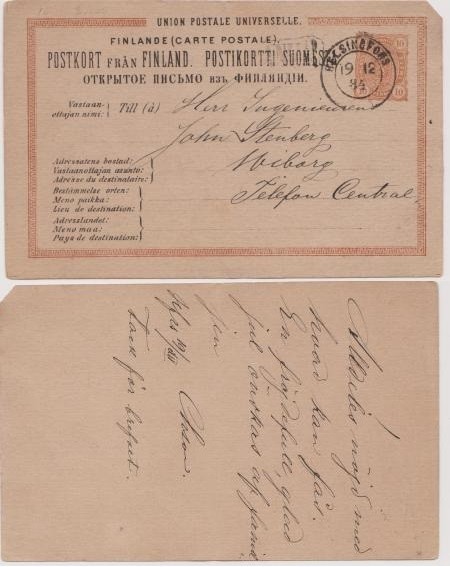 UNION POSTALE UNIVERSELLE.
FINLANDE (CARTE POSTALE).
POSTKORT FRÅN FINLAND. POSTIKORTTI SUOMES
ОТКРЫТОЕ ПИСЬМО изъ ФИНЛЯНДІИ.
HELSINGFORS
19 12
84
10
10
Vastaan-
ottajan nimi:
Till (à) Herr Ingenieuren
John Stenberg
Wiborg
Telefon Central
Adressatens bostad:
Vastaanottajan asunto:
Adresse du destinataire:
Bestämmelse orten:
Meno paikka:
Lieu de destination:
Adresslandet:
Meno maa:
Pays de destination:
Alldeles nöjd med
hvad kan fås.
En fröjdefull, glad
jul önskas af
Hfrs 19/XII
tack för brefvet.